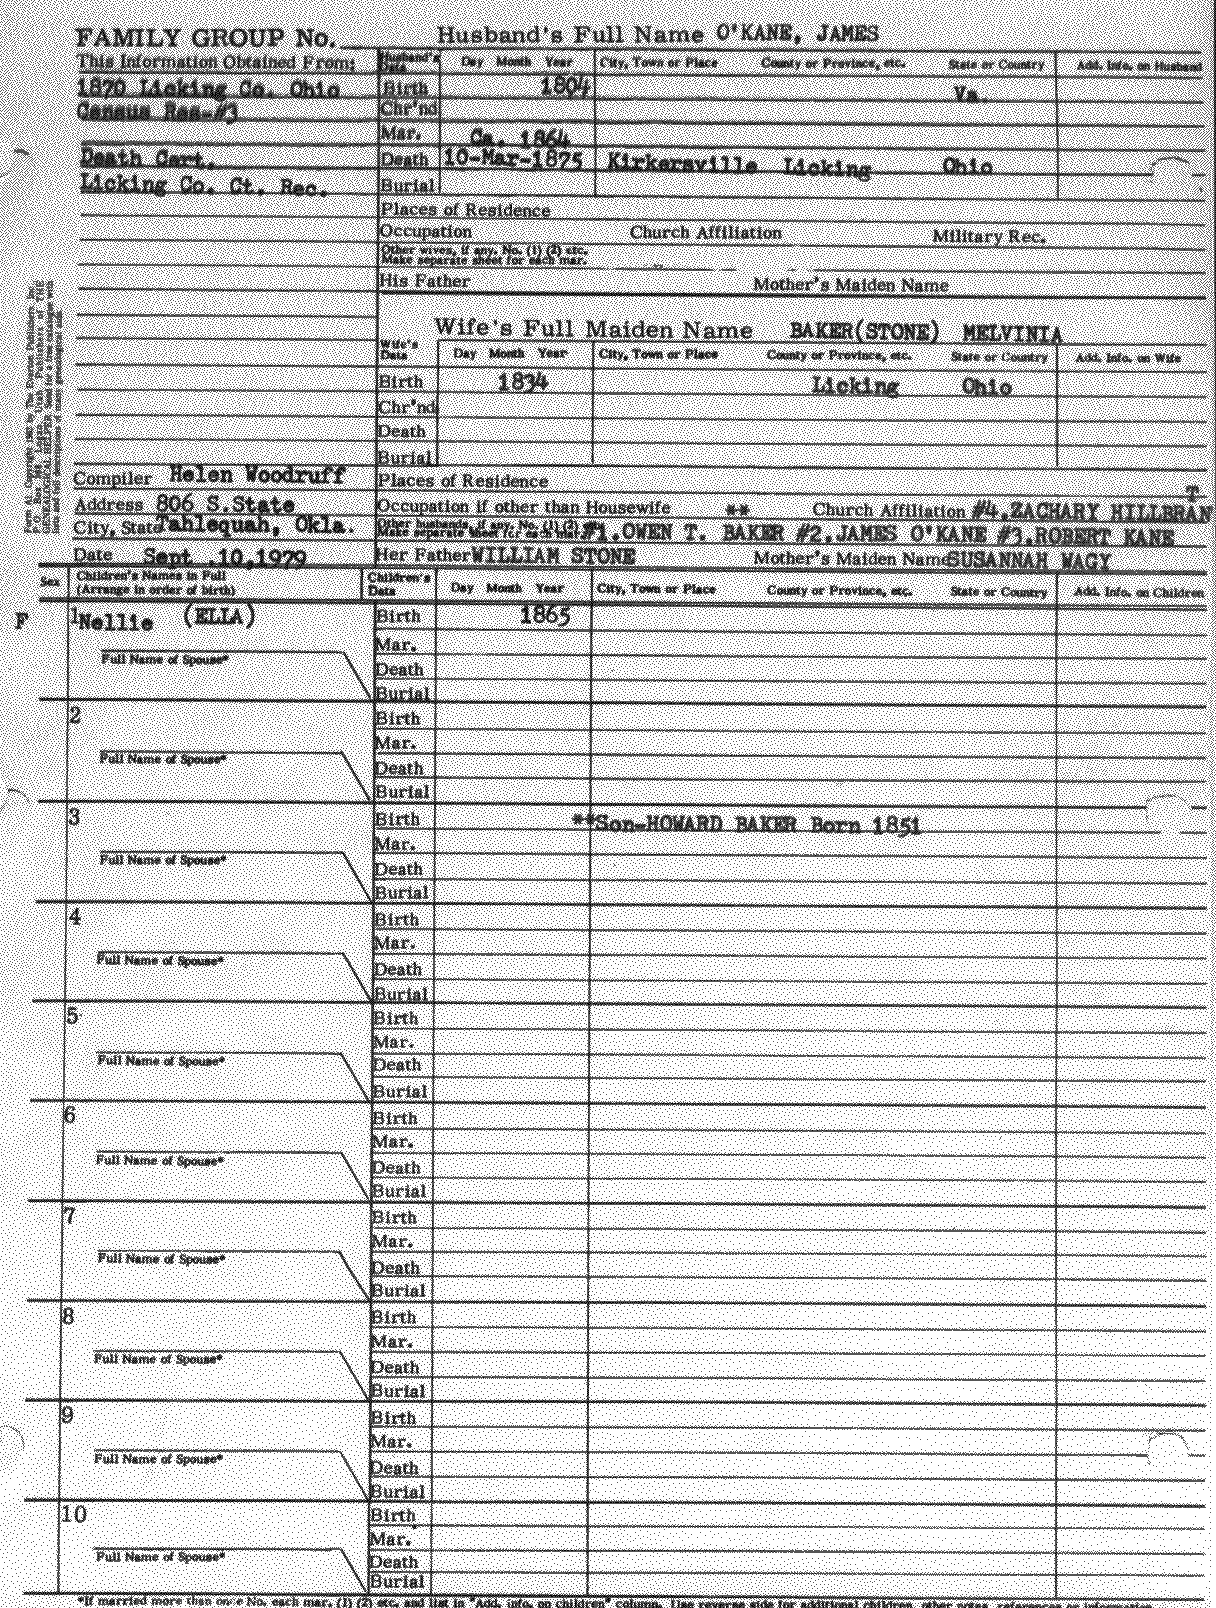 FAMILY GROUP No.
Husband's Full Name O'KANE, JAMES
This Information Obtained From:
Husband's Data Day Month Year City, Town or Place County or Province, etc. State or Country Add. Info. on Husband
1870 Licking Co. Ohio
Birth 1804 Va.
Census Res-#3
Chr'nd
Mar. Ca. 1864
Death Cert.
Death 10-Mar-1875 Kirkersville Licking Ohio
Licking Co. Ct. Rec.
Burial
Places of Residence
Occupation Church Affiliation Military Rec.
Other wives, if any. No. (1) (2) etc.
Make separate sheet for each mar.
His Father Mother's Maiden Name
Wife's Full Maiden Name BAKER(STONE) MELVINIA
Wife's Data Day Month Year City, Town or Place County or Province, etc. State or Country Add. Info. on Wife
Birth 1834 Licking Ohio
Chr'nd
Death
Burial
Compiler Helen Woodruff
Places of Residence
Address 806 S.State
Occupation if other than Housewife ** Church Affiliation #4.ZACHARY HILLBRAN
T
City, State Tahlequah, Okla.
Other husbands, if any. No. (1) (2) etc.
Make separate sheet for each mar. #1.OWEN T. BAKER #2.JAMES O'KANE #3.ROBERT KANE
Date Sept .10,1979
Her Father WILLIAM STONE Mother's Maiden Name SUSANNAH WAGY
Sex Children's Names in Full
(Arrange in order of birth)
Children's Data Day Month Year City, Town or Place County or Province, etc. State or Country Add. Info. on Children
F 1 Nellie (ELLA) Birth 1865
Mar.
Full Name of Spouse*
Death
Burial
2 Birth
Mar.
Full Name of Spouse*
Death
Burial
3 Birth **Son-HOWARD BAKER Born 1851
Mar.
Full Name of Spouse*
Death
Burial
4 Birth
Mar.
Full Name of Spouse*
Death
Burial
5 Birth
Mar.
Full Name of Spouse*
Death
Burial
6 Birth
Mar.
Full Name of Spouse*
Death
Burial
7 Birth
Mar.
Full Name of Spouse*
Death
Burial
8 Birth
Mar.
Full Name of Spouse*
Death
Burial
9 Birth
Mar.
Full Name of Spouse*
Death
Burial
10 Birth
Mar.
Full Name of Spouse*
Death
Burial
*If married more than once No. each mar. (1) (2) etc. and list in "Add. info. on children" column. Use reverse side for additional children, other notes, references or information.